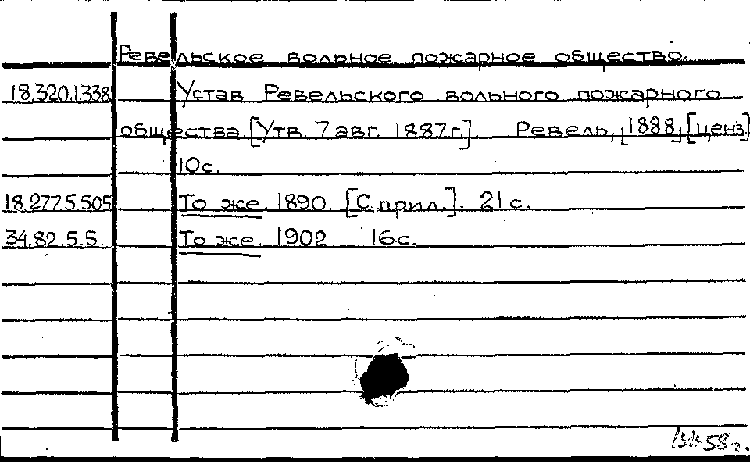 Ревельское вольное пожарное общество.
18.320.1.338 Устав Ревельского вольного пожарного
общества [Утв. 7 авг. 1887г.]. Ревель, [1888], [ценз]
10с.
18.277.5.505 То же. 1890 [С прил.]. 21с.
34.82.5.5 То же. 1902 16с.
58г.